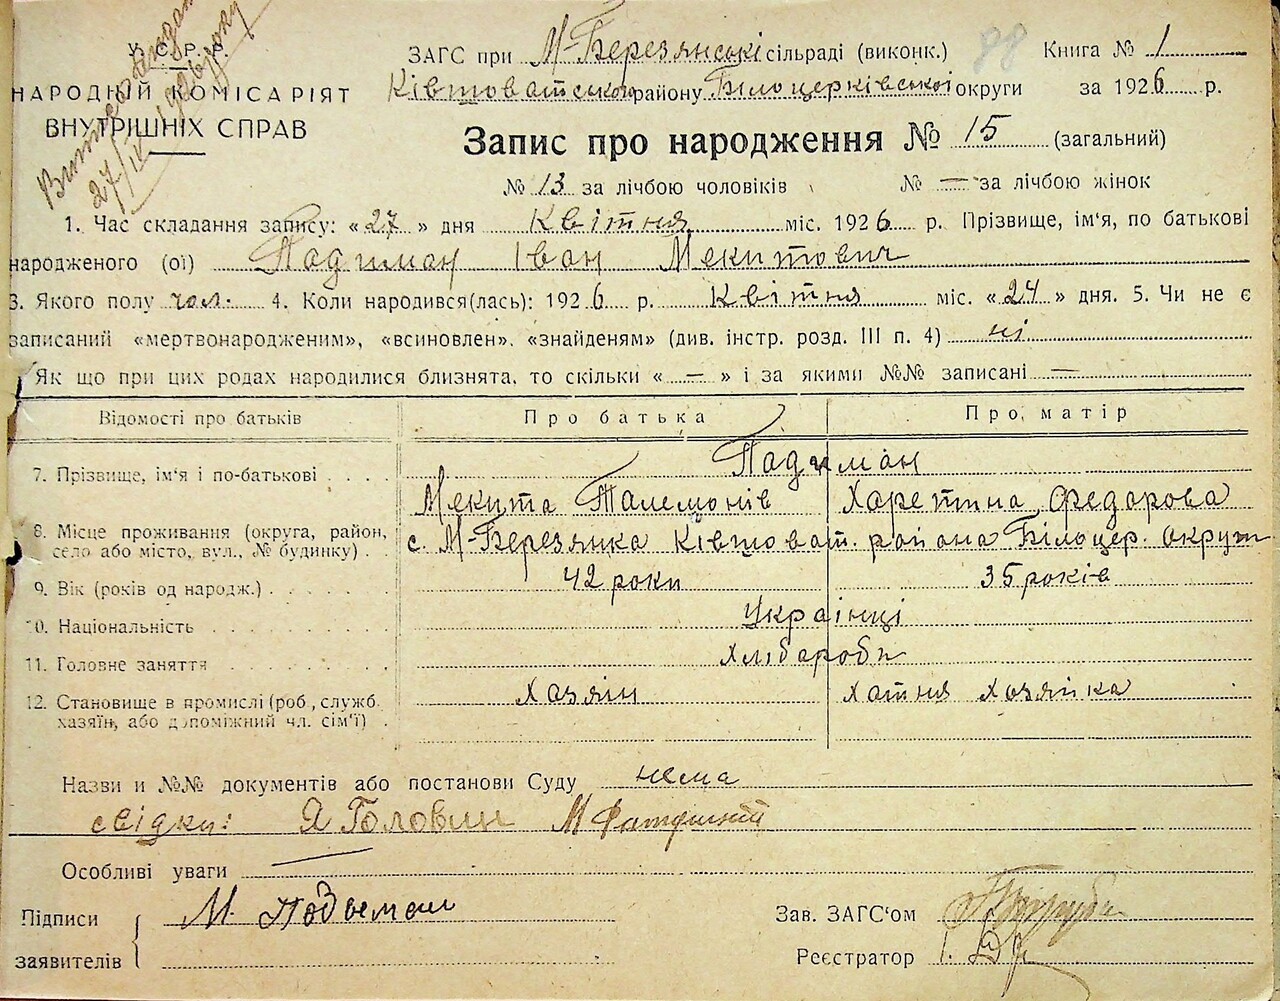 У. С. Р. Р.
НАРОДНІЙ КОМІСАРІЯТ
ВНУТРІШНІХ СПРАВ
27/IV 1926 року
ЗАГС при М-Березянські сільраді (виконк.) 88 Книга № 1
Ківшоватськом району Білоцерківської округи за 1926 р.
Запис про народження № 15 (загальний)
№ 13 за лічбою чоловіків № — за лічбою жінок
1. Час складання запису: «27» дня Квітня міс. 1926 р. Прізвище, ім'я, по батькові
народженого (ої) Падиман Іван Мекитович
3. Якого полу чол. 4. Коли народився(лась): 1926 р. Квітня міс. «24» дня. 5. Чи не є
записаний «мертвонародженим», «всиновлен», «знайденям» (див. інстр. розд. III п. 4) ні
Як що при цих родах народилися близнята, то скільки «—» і за якими №№ записані —
Відомості про батьків Про батька Про матір
7. Прізвище, ім'я і по-батькові Падиман
Мекита Талемонів Харетина Федарова
8. Місце проживання (округа, район, село або місто, вул., № будинку) с. М-Березянка Ківшоват. района Білоцер. округи
9. Вік (років од народж.) 42 роки 35 років
10. Національність Українці
11. Головне заняття Хлібароби
12. Становище в промислі (роб., служб. хазяїн, або допоміжний чл. сім'ї) Хозяін Хатня Хозяйка
Назви и №№ документів або постанови Суду нема
свідки: Я Головин М
Особливі уваги
Підписи заявителів М. Подыман
Зав. ЗАГС'ом
Реєстратор І.